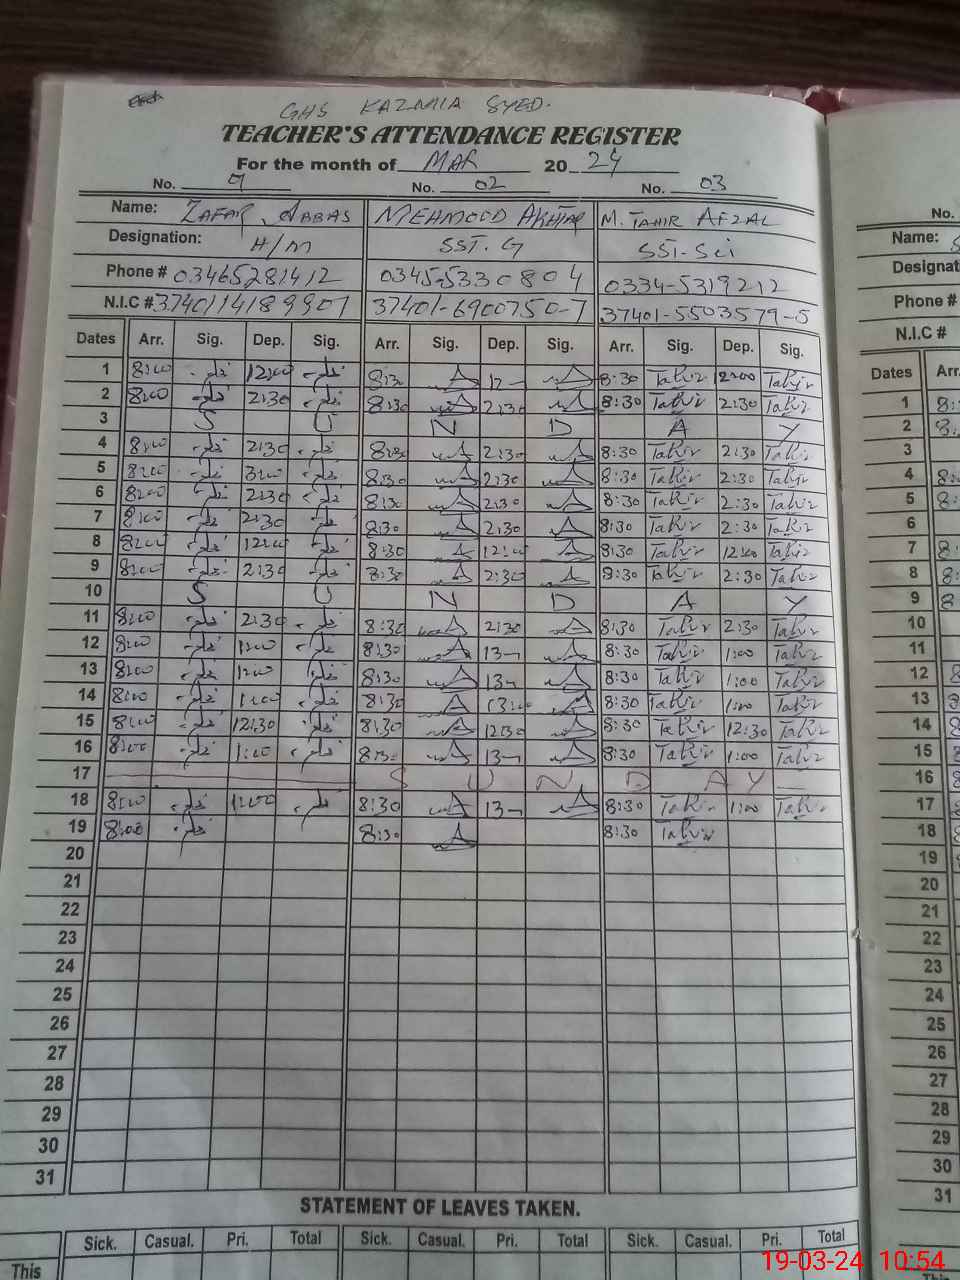 GHS KAZMIA SYED.
TEACHER'S ATTENDANCE REGISTER
For the month of MAR 20 24
No. 01 No. 02 No. 03
Name: ZAFAR ABBAS MEHMOOD AKHTAR M. TAHIR AFZAL
Designation: H/M SST. G SST-Sci
Phone # 03465281412 0345-5330804 0334-5319212
N.I.C # 3740114189907 37401-6900750-7 37401-5503579-5
Dates Arr. Sig. Dep. Sig. Arr. Sig. Dep. Sig. Arr. Sig. Dep. Sig.
1 8:00 12:00 8:30 12- 8:30 Tahir 12:00 Tahir
2 8:00 2:30 8:30 2:30 8:30 Tahir 2:30 Tahir
3 S U N D A Y
4 8:00 2:30 8:30 2:30 8:30 Tahir 2:30 Tahir
5 8:00 3:00 8:30 2:30 8:30 Tahir 2:30 Tahir
6 8:00 2:30 8:30 2:30 8:30 Tahir 2:30 Tahir
7 8:00 2:30 8:30 2:30 8:30 Tahir 2:30 Tahir
8 8:00 12:00 8:30 12:00 8:30 Tahir 12:00 Tahir
9 8:00 2:30 8:30 2:30 8:30 Tahir 2:30 Tahir
10 S U N D A Y
11 8:00 2:30 8:30 2:30 8:30 Tahir 2:30 Tahir
12 8:00 1:00 8:30 13- 8:30 Tahir 1:00 Tahir
13 8:00 1:00 8:30 13- 8:30 Tahir 1:00 Tahir
14 8:00 1:00 8:30 13:00 8:30 Tahir 1:00 Tahir
15 8:00 12:30 8:30 12:30 8:30 Tahir 12:30 Tahir
16 8:00 1:00 8:30 13- 8:30 Tahir 1:00 Tahir
17 S U N D A Y
18 8:00 1:00 8:30 13- 8:30 Tahir 1:00 Tahir
19 8:00 8:30 8:30 Tahir
20
21
22
23
24
25
26
27
28
29
30
31
STATEMENT OF LEAVES TAKEN.
Sick. Casual. Pri. Total Sick. Casual. Pri. Total Sick. Casual. Pri. Total
This
No.
Name:
Designat
Phone #
N.I.C #
Dates Arr.
1 8:
2 8:
3
4 8:
5 8:
6
7 8:
8 8:
9 8
10
11
12 8
13 8
14 8
15 8
16 8
17 8
18 8
19 8
20
21
22
23
24
25
26
27
28
29
30
31
This
19-03-24 10:54